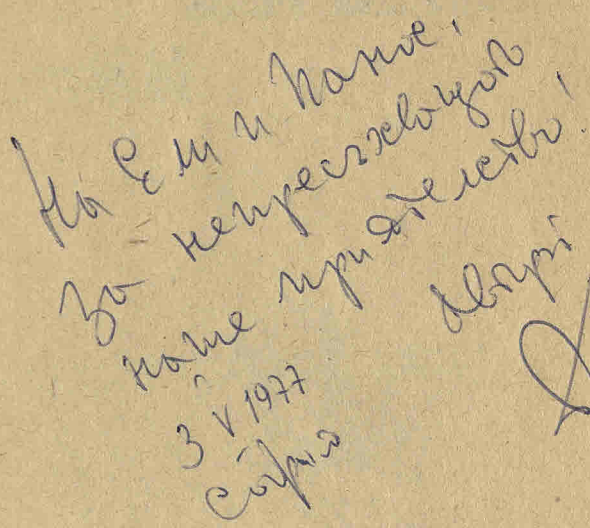 На Еми и Панче,
за непресъхващото
наше приятелство!
Автор:
3 V 1977
София